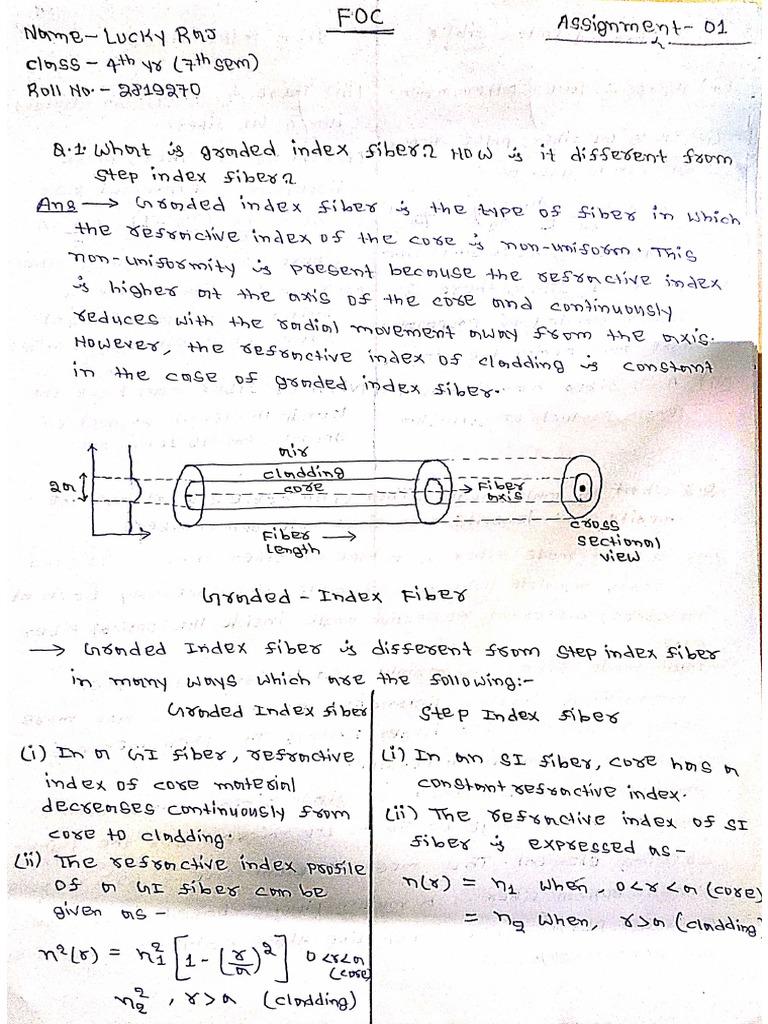 FOC
Assignment-01
Name- Lucky Raj
class - 4th yr (7th sem)
Roll No. - 2819270
Q.1. What is graded index fiber? How is it different from
step index fiber?
Ans → Graded index fiber is the type of fiber in which
the refractive index of the core is non-uniform. This
non-uniformity is present because the refractive index
is higher at the axis of the core and continuously
reduces with the radial movement away from the axis.
However, the refractive index of cladding is constant
in the case of graded index fiber.
air
cladding
core
2a
→ Fiber
axis
Fiber →
Length
cross
sectional
view
Graded - Index Fiber
→ Graded Index fiber is different from step index fiber
in many ways which are the following:-
Graded Index fiber
(i) In a GI fiber, refractive
index of core material
decreases continuously from
core to cladding.
(ii) The refractive index profile
of a GI fiber can be
given as -
n²(r) = n₁² [1 - (r/a)²] 0<r<a
(core)
n₂² , r>a (cladding)
Step Index fiber
(i) In an SI fiber, core has a
constant refractive index.
(ii) The refractive index of SI
fiber is expressed as -
n(r) = n₁ when, 0<r<a (core)
= n₂ when, r>a (cladding)